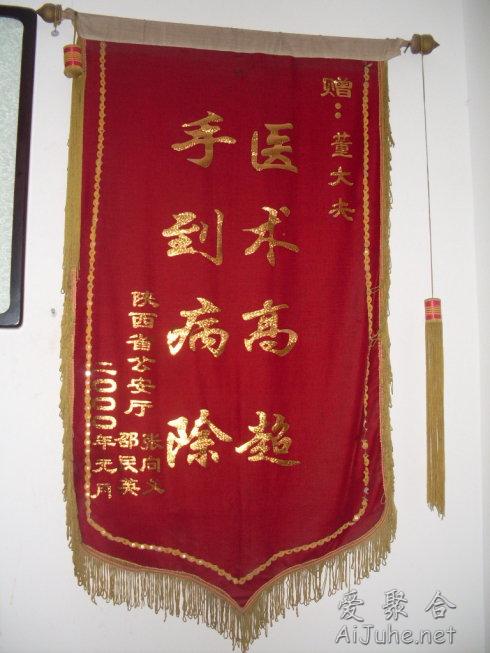 赠：董大夫
医术高超
手到病除
陕西省公安厅
张向义
邵民英
二000年元月
爱聚合
AiJuhe.net